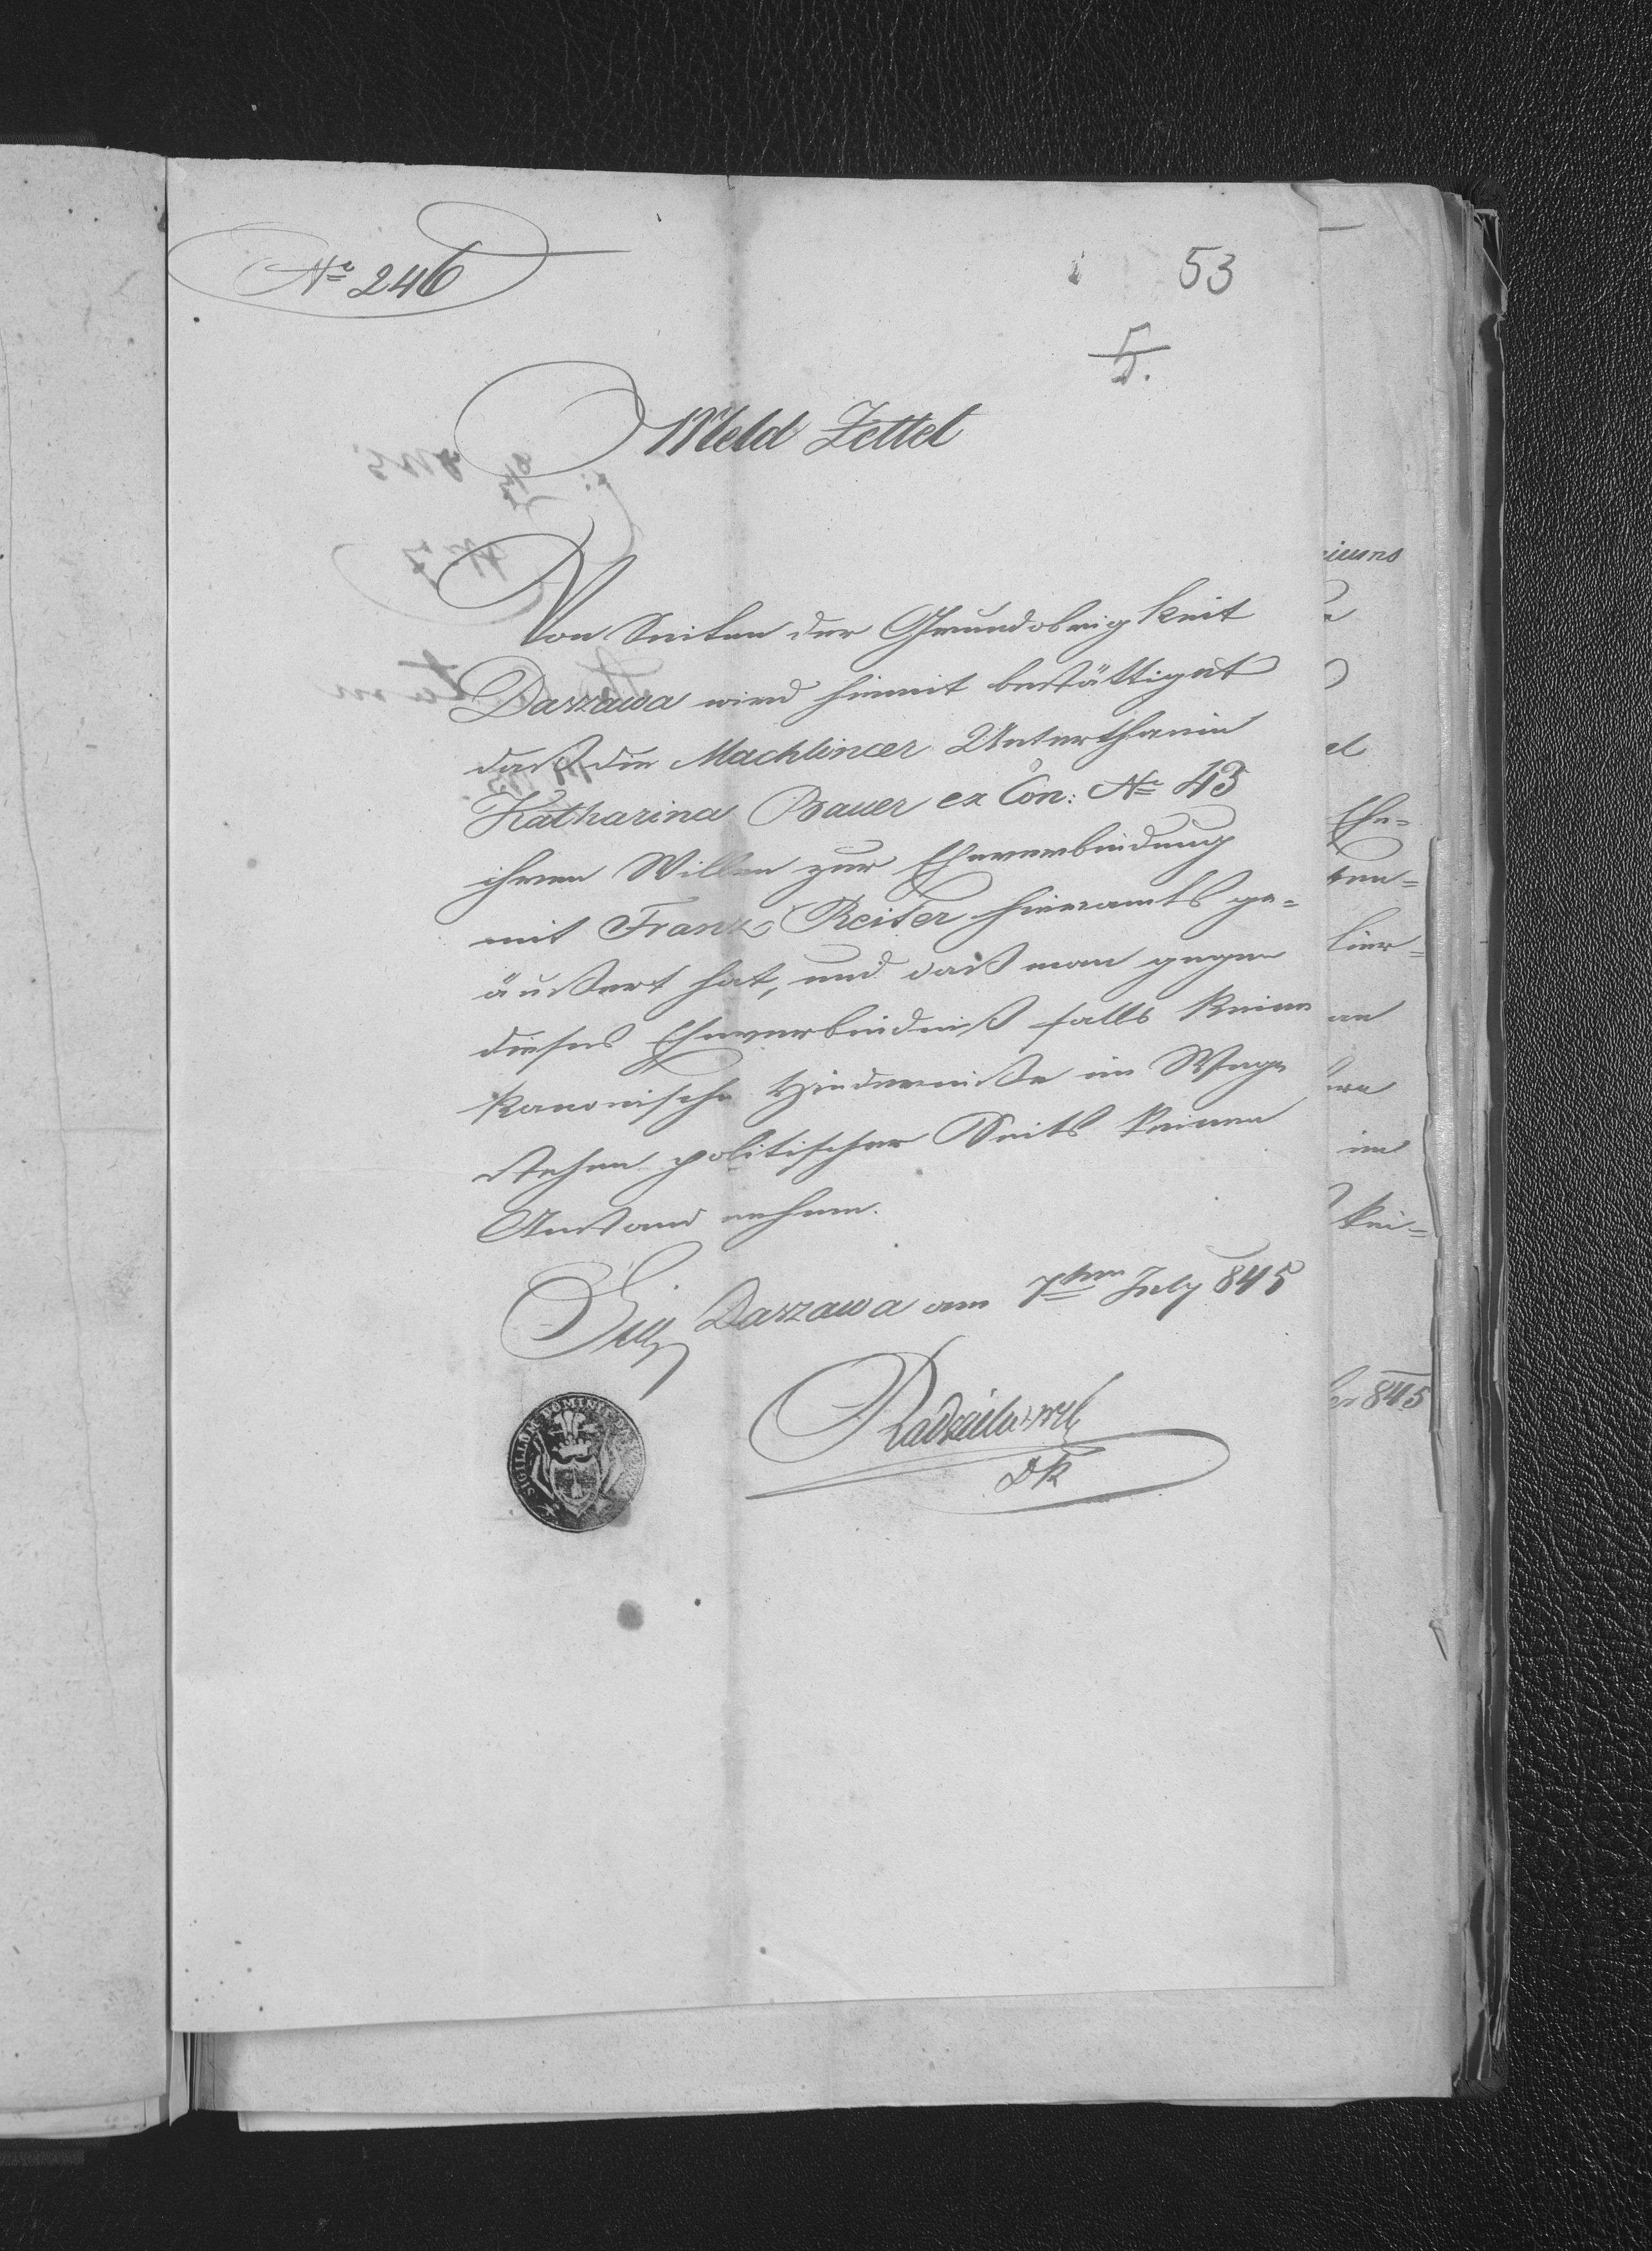 No 246
53
5.
Meld Zettel
Von Seiten der Grundobrigkeit
Darzawa wird hiemit bestättiget
daß die Machlincer Unterthanin
Katharina Bauer ex Con: No 43
ihren Willen zur Eheverbindung
mit Franz Reiter hieramts ge=
äußert hat, und daß man gegen
dieses Eheverbindniß falls keine
kanonische Hinderniße im Wege
stehen politischer Seits keinen
Anstand nehme.
Sig Darzawa am 7ten July 845
DK
SIGILLUM DOMINII
iums
el
Ehe=
lier=
an
im
kei=
845